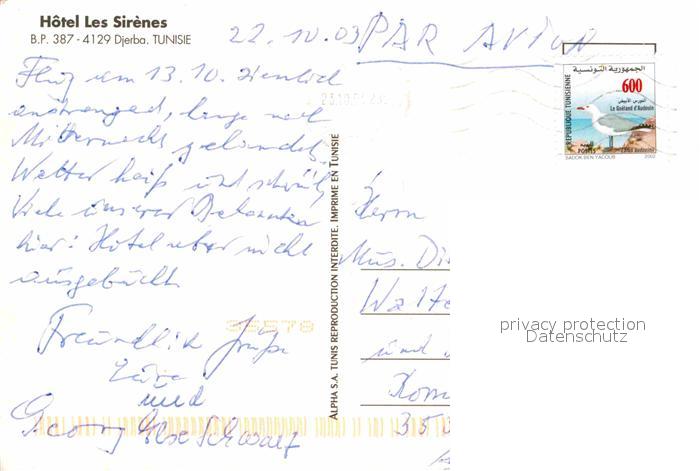 Hôtel Les Sirènes
B.P. 387 - 4129 Djerba. TUNISIE
22.10.03 PAR AVION
Flug am 13.10. ziemlich
anstrengend, lange nach
Mitternacht gelandet.
Wetter heiß und schwül
Viele unserer Bekannten
hier! Hotel aber nicht
ausgebucht
Freundlich Grüße
und
Georg Schwarz
36578
ALPHA S.A. TUNIS REPRODUCTION INTERDITE. IMPRIME EN TUNISIE
الجمهورية التونسية
600
النورس الأبيض
Le Goéland d'Audouin
REPUBLIQUE TUNISIENNE
POSTES
SADOK BEN YACOUB 2002
Herrn
Mus. Di
Walte
und
35
privacy protection
Datenschutz